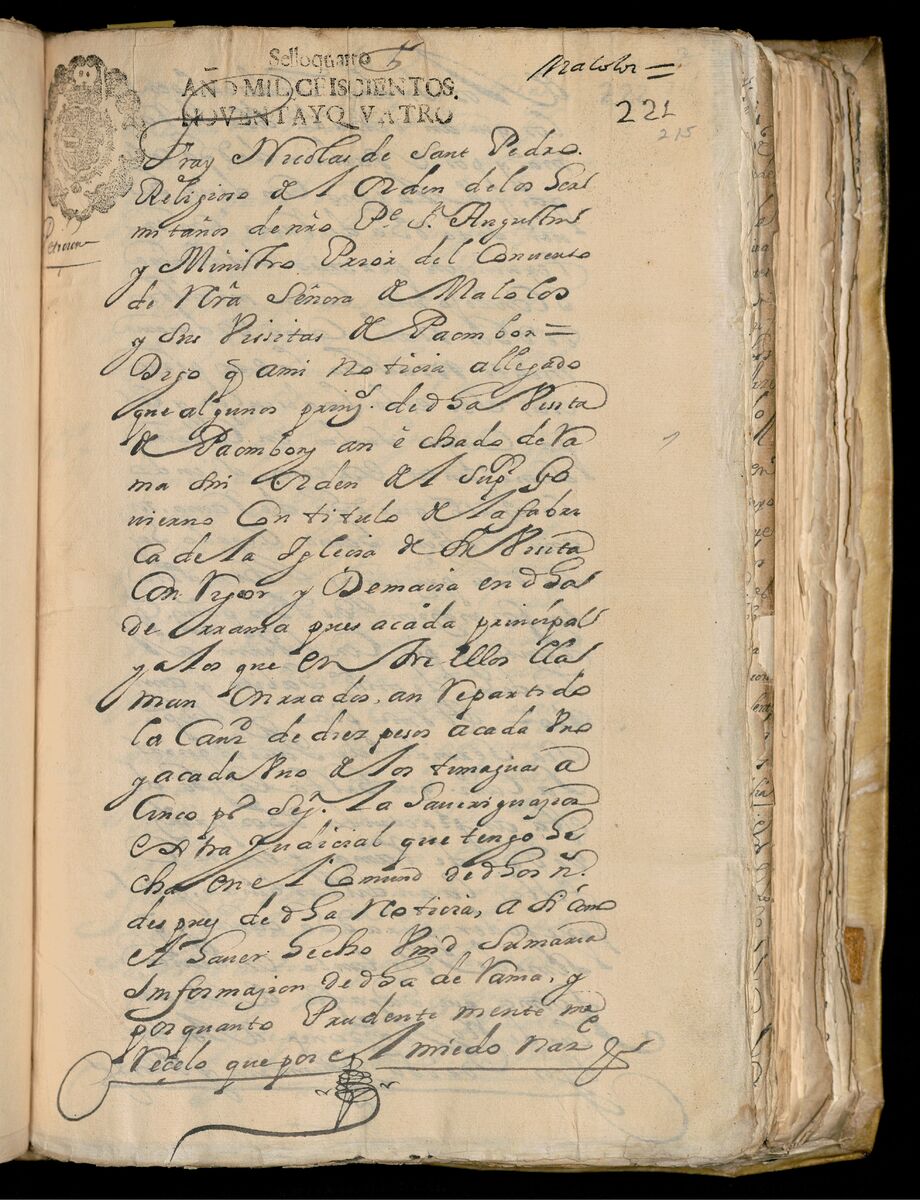 Sello quarto
AÑO MIL CEISCIENTOS,
NOVENTAYQVATRO
Malolos =
221
215
Peticion
Fray Nicolas de Sant Pedro.
Religioso del Orden de los Her
mitaños de nro Pe. S. Augustin
y Ministro Prior del Convento
de Nra Señora de Malolos
y sus Visitas de Paombon =
Digo q̃ a mi noticia allegado
que algunos prinz. de dha Visita
de Paombon an echado derra
ma sin orden del Supr. Go
uierno Con titulo de la fabri
ca de la Iglecia de dha Vicita
Con Rigor y Demacia en dha
derrama pues acada principal
y alos que entre ellos lla
man onrrados, an Repartido
la Cantd de diez pesos acada Vno
y acada Vno de los timaguas a
Cinco ps Segn. la haueriguazion
extra judicial que tengo he
cha en el Comun de dhos ñ.
despues de dha noticia, asi como
el hauer hecho Vmd Sumaria
Informazion de dha derrama, y
por quanto Prudente mente me
Reçelo que por el miedo nat